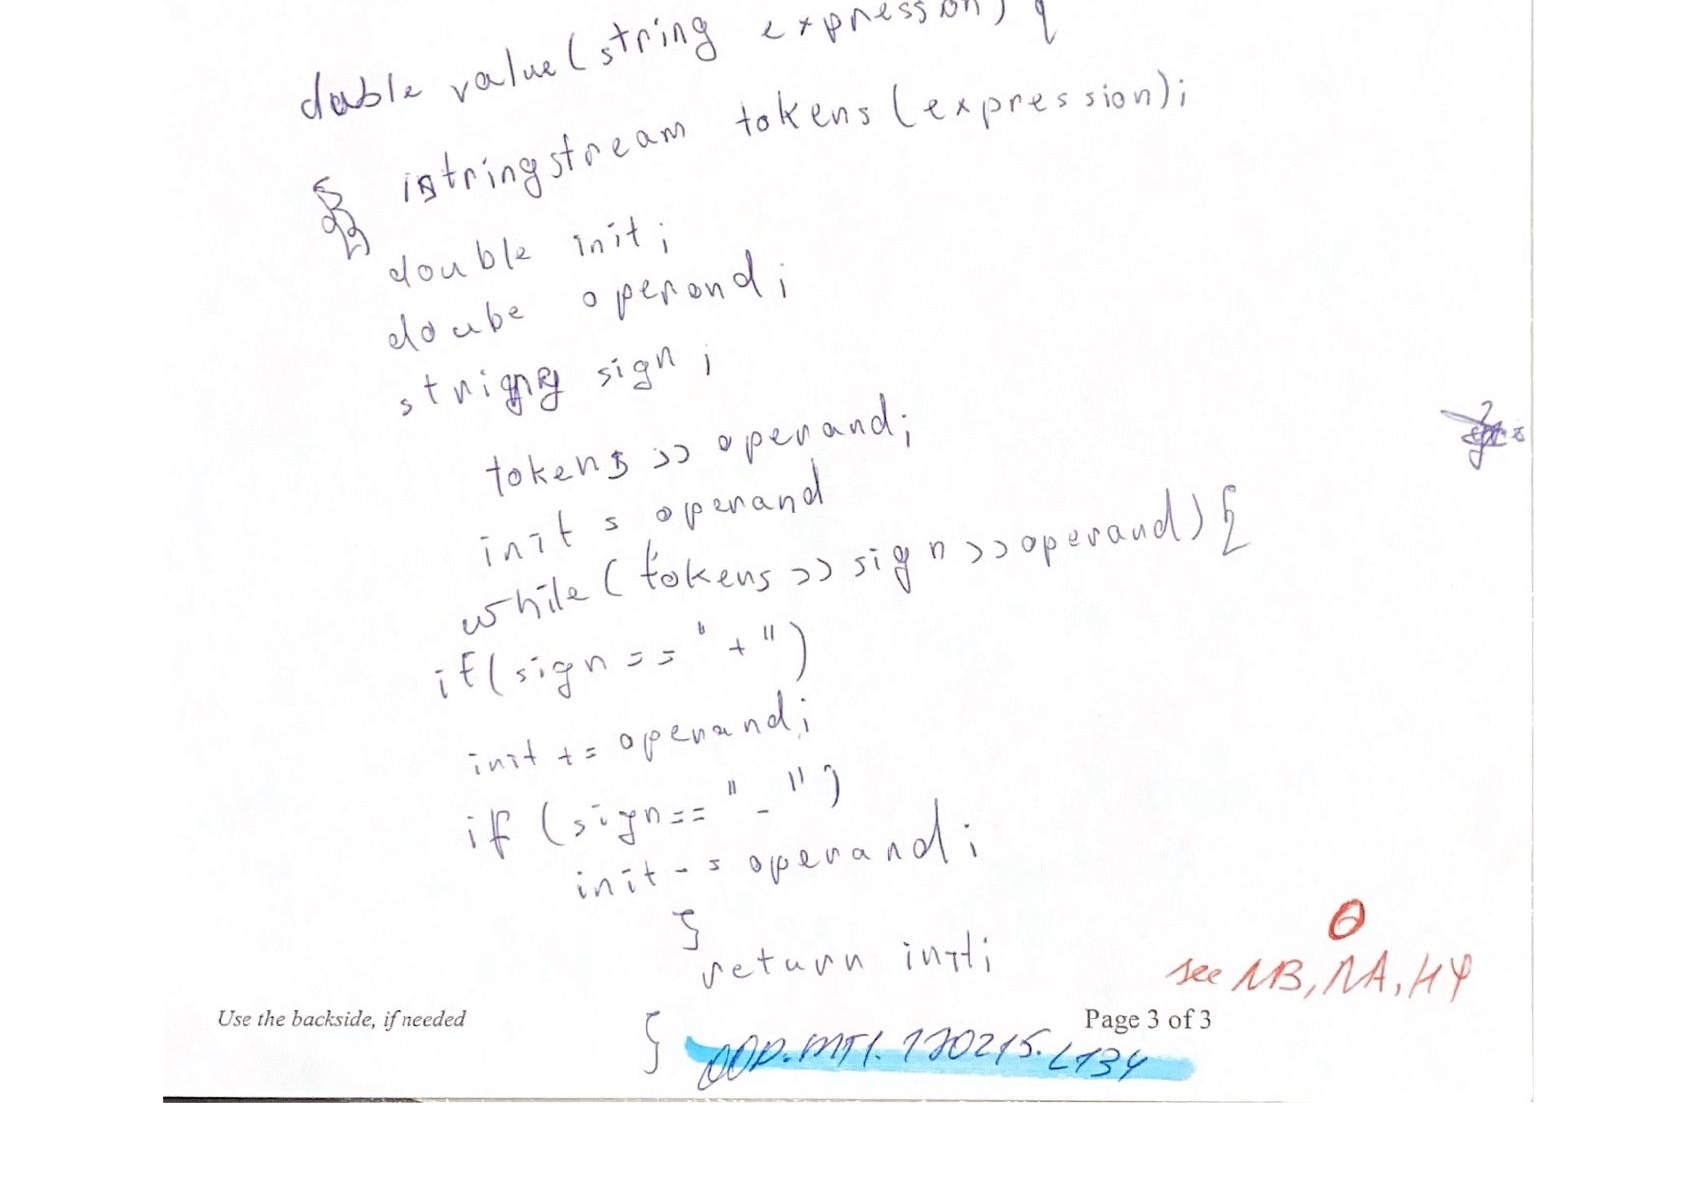 double value(string expression) {
istringstream tokens(expression);
double init;
doube operand;
string sign;
tokens >> operand;
init = operand
while(tokens >> sign >> operand) {
if(sign == "+")
init += operand;
if (sign == "-")
init -= operand;
}
return init;
see NB, NA, HY
Use the backside, if needed
Page 3 of 3
}
OOP.MT1.170215.L134